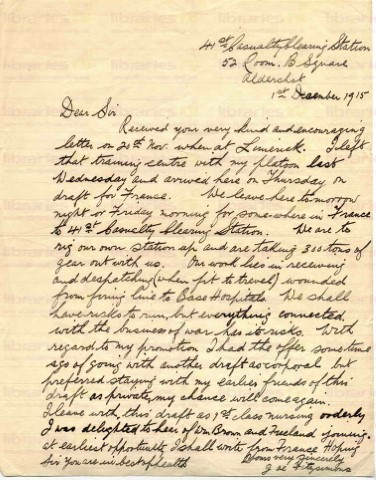 41st Casualty Clearing Station
52 Room. B Square
Alderchot
1st December 1915
Dear Sir
Received your very kind and encouraging
letter on 20th Nov. when at Limerick. I left
that training centre with my platoon last
Wednesday and arrived here on Thursday on
draft for France. We leave here tomorrow
night or Friday morning for somewhere in France
to 41st Casualty Clearing Station. We are to
rig our own station up and are taking 300 tons of
gear out with us. Our work lies in receiving
and despatching (when fit to travel) wounded
from firing line to Base Hospitals. We shall
have risks to run, but everything connected
with the business of war has its risks. With
regard to my promotion I had the offer some time
ago of going with another draft as corporal but
preferred staying with my earlier friends of this
draft as private, my chance will come again.
I leave with this draft as 1st class nursing orderly
I was delighted to hear of Wm Brown and Freeland joining.
At earliest opportunity I shall write from France Hoping
Sir you are in best of health
Yours very sincerely
Fitzsimons
libraries